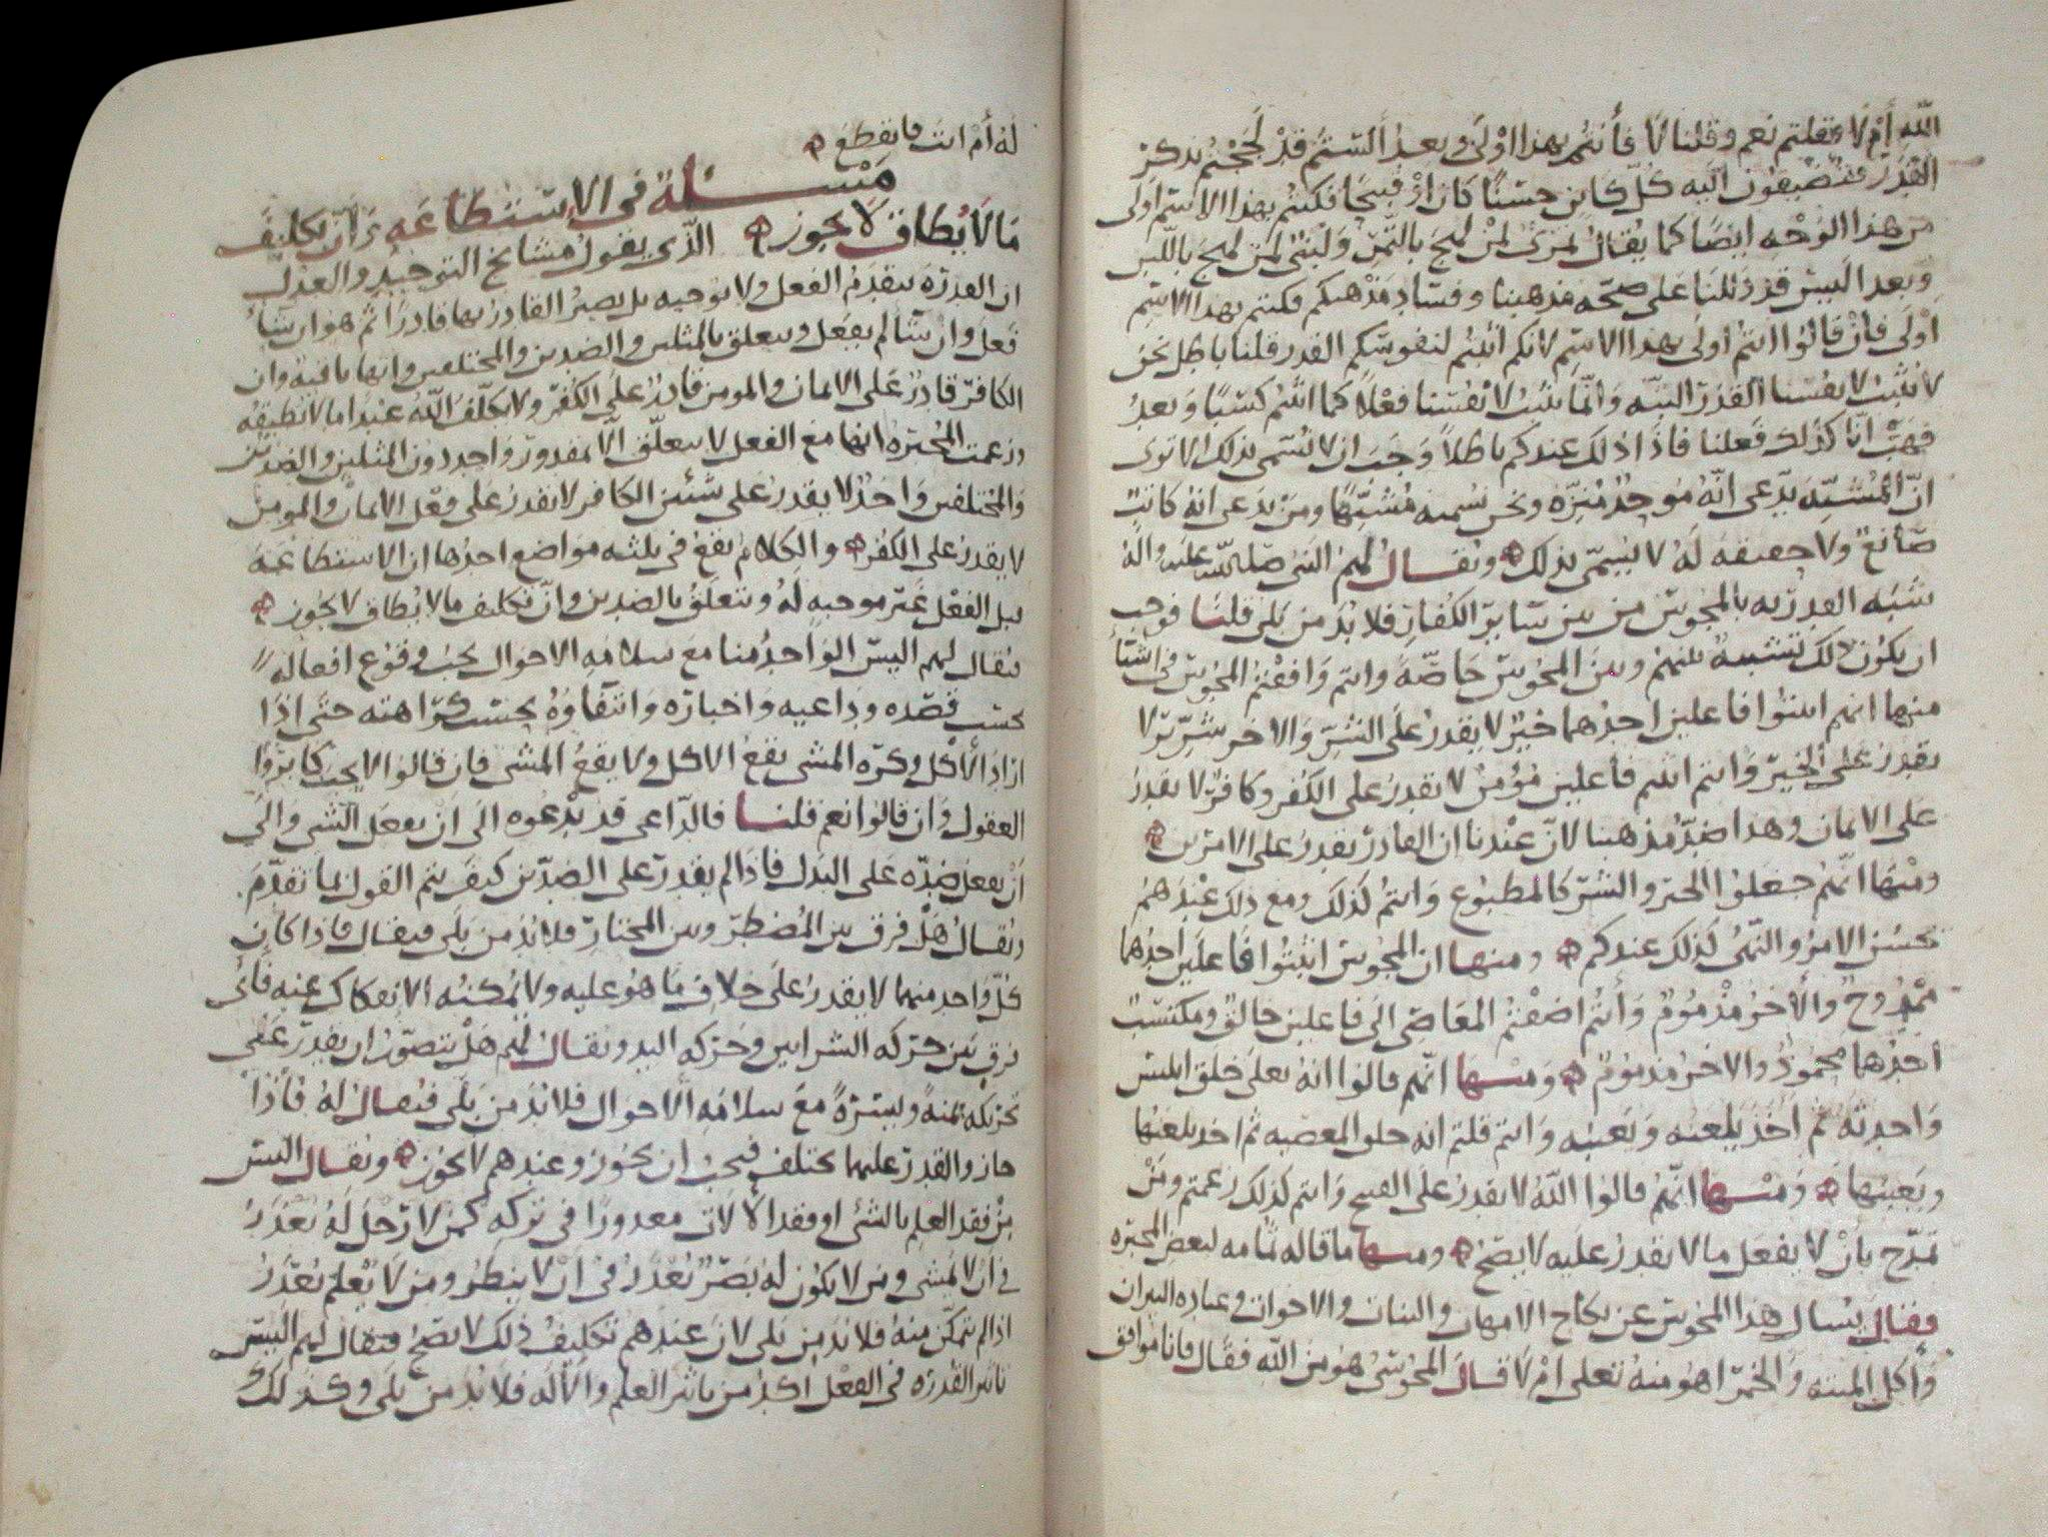 الله أم لا فقلتم نعم وقلنا لا فأنتم بهذا اولى وبعد ألستم قد لججتم بذكر
القدر فتضيفون اليه كل كائن حسنا كان او قبيحا فكنتم بهذا الاسم اولى
من هذا الوجه ايضا كما يقال تمري لمن لهج بالتمر ولبني لمن لهج باللبن
وبعد اليس قد دللنا على صحة مذهبنا وفساد مذهبكم فكنتم بهذا الاسم
اولى فان قالوا انتم اولى بهذا الاسم لانكم اثبتم لنفوسكم القدر قلنا باطل نحن
لا نثبت لانفسنا القدر البته وانما نثبت لانفسنا فعلا كما اثبتم كسبا وبعد
فهب انا كذلك فعلنا فاذا ذلك عندكم باطلا وجب ان لا نسمى بذلك الا ترى
ان المشبه يدعى انه موحد منزه ونحن نسميه مشبها ومن يدعى انه كاتب
صانع ولا حقيقه له لا يسمى بذلك ويقال لهم النبى صلى الله عليه واله
شبه القدريه بالمجوس من بين سائر الكفار فلا بد من بلى قلنا فوجب
ان يكون ذلك لشبه بينهم وبين المجوس خاصة وانتم وافقتم المجوس فى اشيا
منها انهم اثبتوا فاعلين احدهما خير لا يقدر على الشر والاخر شرير لا
يقدر على الخير وانتم اثبتم فاعلين مؤمن لا يقدر على الكفر وكافر لا يقدر
على الايمان وهذا ضد مذهبنا لان عندنا ان القادر يقدر على الامرين
ومنها انهم جعلوا الخير والشر كالمطبوع وانتم كذلك ومع ذلك عندهم
يحسن الامر والنهى كذلك عندكم ومنها ان المجوس اثبتوا فاعلين احدهما
ممدوح والاخر مذموم وأنتم اضفتم المعاصى الى فاعلين خالق ومكتسب
احدهما محمود والاخر مذموم ومنها انهم قالوا انه تعلى خلق ابليس
واحدثه ثم اخذ يلعنه ويعيبه وانتم قلتم انه خلق المعصيه ثم اخذ يلعنها
ويعيبها ومنها انهم قالوا الله لا يقدر على القبيح وانتم كذلك زعمتم ومن
تمدح بأن لا يفعل ما لا يقدر عليه لا يصح ومنها ما قاله ثمامه لبعض المجبره
فقال يسال هذا المجوسى عن نكاح الامهات والبنات والاخوات وعباده النيران
واكل الميته والخمر اهو منه تعلى ام لا قال المجوسى هو من الله فقال فانا موافق
له أم انت فانقطع
مسئلة فى الاستطاعه وان تكليف
ما لا يطاق لا يجوز الذى يقول مشايخ التوحيد والعدل
ان القدرة تتقدم الفعل ولا توجبه بل يصير القادر بها قادرا ثم هو ان شا
فعل وان شا لم يفعل ويتعلق بالمثلين والضدين والمختلفين وانها باقية وان
الكافر قادر على الايمان والمومن قادر على الكفر ولا يكلف الله عبدا ما لا يطيقه
وزعمت المجبره انها مع الفعل لا يتعلق الا بمقدور واحد دون المثلين والضدين
والمختلفين واحد لا يقدر على شئين الكافر لا يقدر على فعل الايمان والمومن
لا يقدر على الكفر والكلام يقع فى ثلثه مواضع احدها ان الاستطاعة
قبل الفعل غير موجبه له وتتعلق بالضدين وان تكليف ما لا يطاق لا يجوز
يقال لهم اليس الواحد منا مع سلامه الاحوال يجب وقوع افعاله
بحسب قصده وداعيه واختياره وانتفاؤه بحسب كراهته حتى اذا
اراد الأكل وكره المشى يقع الاكل ولا يقع المشى فان قالوا لا يجب كابروا
العقول وان قالوا نعم قلنا فالداعى قد يدعوه الى ان يفعل الشى والى
أن يفعل ضده على البدل فاذا لم يقدر على الضدين كيف يتم القول بما تقدم
ويقال هل فرق بين المضطر وبين المختار فلا بد من بلى فيقال فاذا كان
كل واحد منهما لا يقدر على خلاف ما هو عليه ولا يمكنه الانفكاك عنه فاى
فرق بين حركه الشرايين وحركه اليد ويقال لهم هل يتصور ان يقدر على
تحريكه يمنة ويسرة مع سلامه الاحوال فلا بد من بلى فيقال له فاذا
جاز والقدر عليهما يختلف فيجب ان يجوز وعندهم لا يجوز ويقال اليس
من فقد العلم بالشئ او فقد الآلات معذورا فى تركه كمن لا رجل له يعذر
فى أن لا يمشى ومن لا يكون له بصر يعذر فى ان لا ينظر ومن لا يعلم يعذر
اذا لم يتمكن منه فلا بد من بلى لان عندهم تكليف ذلك لا يصح فيقال لهم اليس
تاثير القدره فى الفعل اكد من تاثير العلم والآله فلا بد من بلى وكذلك